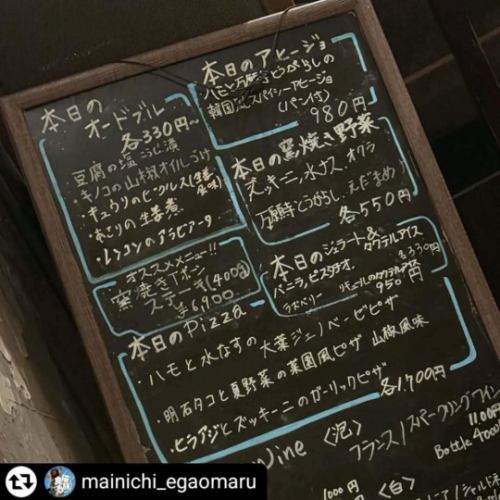 本日の
オードブル
各330円〜
豆腐の塩こうじ漬
・キノコの山椒オイルづけ
・きゅうりのピクルス(生姜風味)
・あさりの生姜煮
・レンコンのアラビアータ
本日のアヒージョ
ハモと万願寺とうがらしの
韓国風スパイシーアヒージョ
(パン付)
980円
本日の窯焼き野菜
ズッキーニ, 水ナス, オクラ
万願寺とうがらし, えだまめ
各550円
オススメメニュー!!
窯焼きTボーン
ステーキ(400g)
¥6,900
本日のジェラート&カクテルアイス
バニラ, ピスタチオ,
各330円
950円
本日のpizza
・ハモと水なすの大葉ジェノベーゼピザ
・明石タコと夏野菜の菜園風ピザ 山椒風味
・ヒラアジとズッキーニのガーリックピザ
各1,700円
Wine
〈泡〉
フランス/スパークリングワイン
Bottle
1000円
〈白〉
mainichi_egaomaru